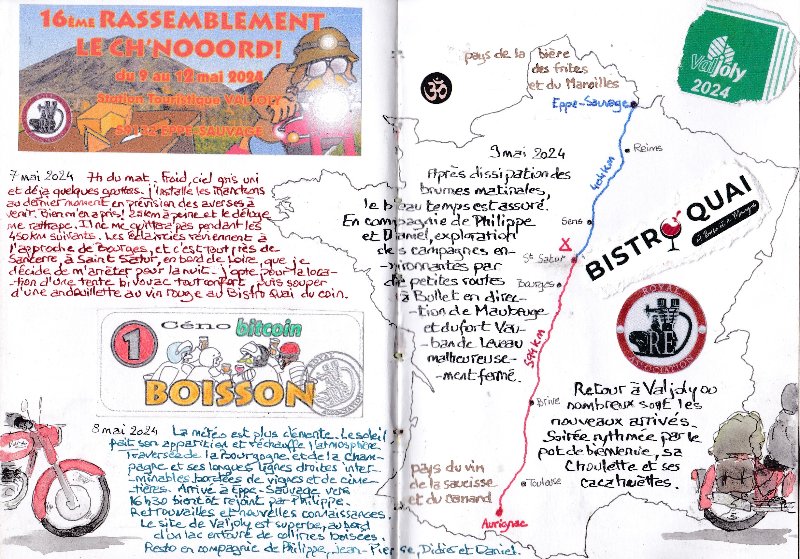 16ÈME RASSEMBLEMENT
LE CH'NOOORD!
du 9 au 12 mai 2024
Station Touristique VALJOLY
59132 EPPE-SAUVAGE
7 mai 2024 7h du mat. Froid, ciel gris uni
et déjà quelques gouttes. J'installe les manchons
au dernier moment en prévision des averses à
venir. Bien m'en a pris! 2 km à peine et le déluge
me rattrape. Il ne me quittera pas pendant les
450 km suivants. Les éclaircies reviennent à
l'approche de Bourges, et c'est tout près de
Sancerre, à Saint Satur, en bord de Loire, que je
décide de m'arrêter pour la nuit. J'opte pour la loca-
-tion d'une tente bivouac tout confort, puis souper
d'une andouillette au vin rouge au Bistro Quai du coin.
1
Céno bitcoin
BOISSON
8 mai 2024 La météo est plus clémente. Le soleil
fait son apparition et réchauffe l'atmosphère.
Traversée de la Bourgogne et de la Cham-
pagne et ses longues lignes droites inter-
minables bordées de vignes et de cime-
-tières. Arrivé à Eppe-Sauvage vers
16h30 bientôt rejoint par Philippe.
Retrouvailles et nouvelles connaissances.
Le site de Valjoly est superbe, au bord
d'un lac entouré de collines boisées.
Resto en compagnie de Philippe, Jean-Pierre, Didier et Daniel.
pays de la bière
des frites
et du Maroilles
Eppe-Sauvage
Valjoly
2024
Reims
Sens
St Satur
Bourges
Brive
Toulouse
Aurignac
541 km
9 mai 2024
Après dissipation des
brumes matinales,
le beau temps est assuré.
En compagnie de Philippe
et Daniel, exploration
des campagnes en-
-vironnantes par
de petites routes
à Bullet en direc-
-tion de Maubeuge
et du fort Vau-
-ban de Leveau
malheureuse-
-ment fermé.
BISTRO QUAI
ROYAL
RE
ASSOCIATION
Retour à Valjoly où
nombreux sont les
nouveaux arrivés.
Soirée rythmée par le
pot de bienvenue, sa
Choulette et ses
cacahuettes.
pays du vin
de la saucisse
et du canard